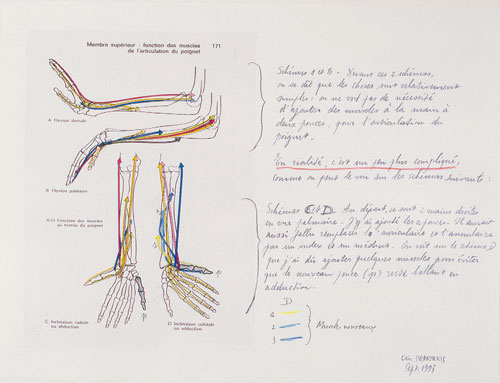 Membre supérieur : fonction des muscles
de l'articulation du poignet
171
A Flexion dorsale
B Flexion palmaire
A-D Fonction des muscles
au niveau du poignet
C Inclinaison radiale
ou abduction
D Inclinaison cubitale
ou adduction
Schémas A et B - Devant ces 2 schémas,
on se dit que les choses sont relativement
simples : on ne voit pas de nécessité
d'ajouter des muscles à la main à
deux pouces, pour l'articulation du
poignet.
En réalité, c'est un peu plus compliqué,
comme on peut le voir sur les schémas suivants :
Schémas C et D. Au départ, ce sont 2 mains droites
en vue palmaire. J'y ai ajouté les 2 pouces. Il aurait
aussi fallu remplacer l'annulaire
par un index et un médius. On voit sur le schéma D
que j'ai dû ajouter quelques muscles pour éviter
que le nouveau pouce (p) reste ballant en
adduction.
D
1
2
3
Muscles nouveaux
Sept. 1998